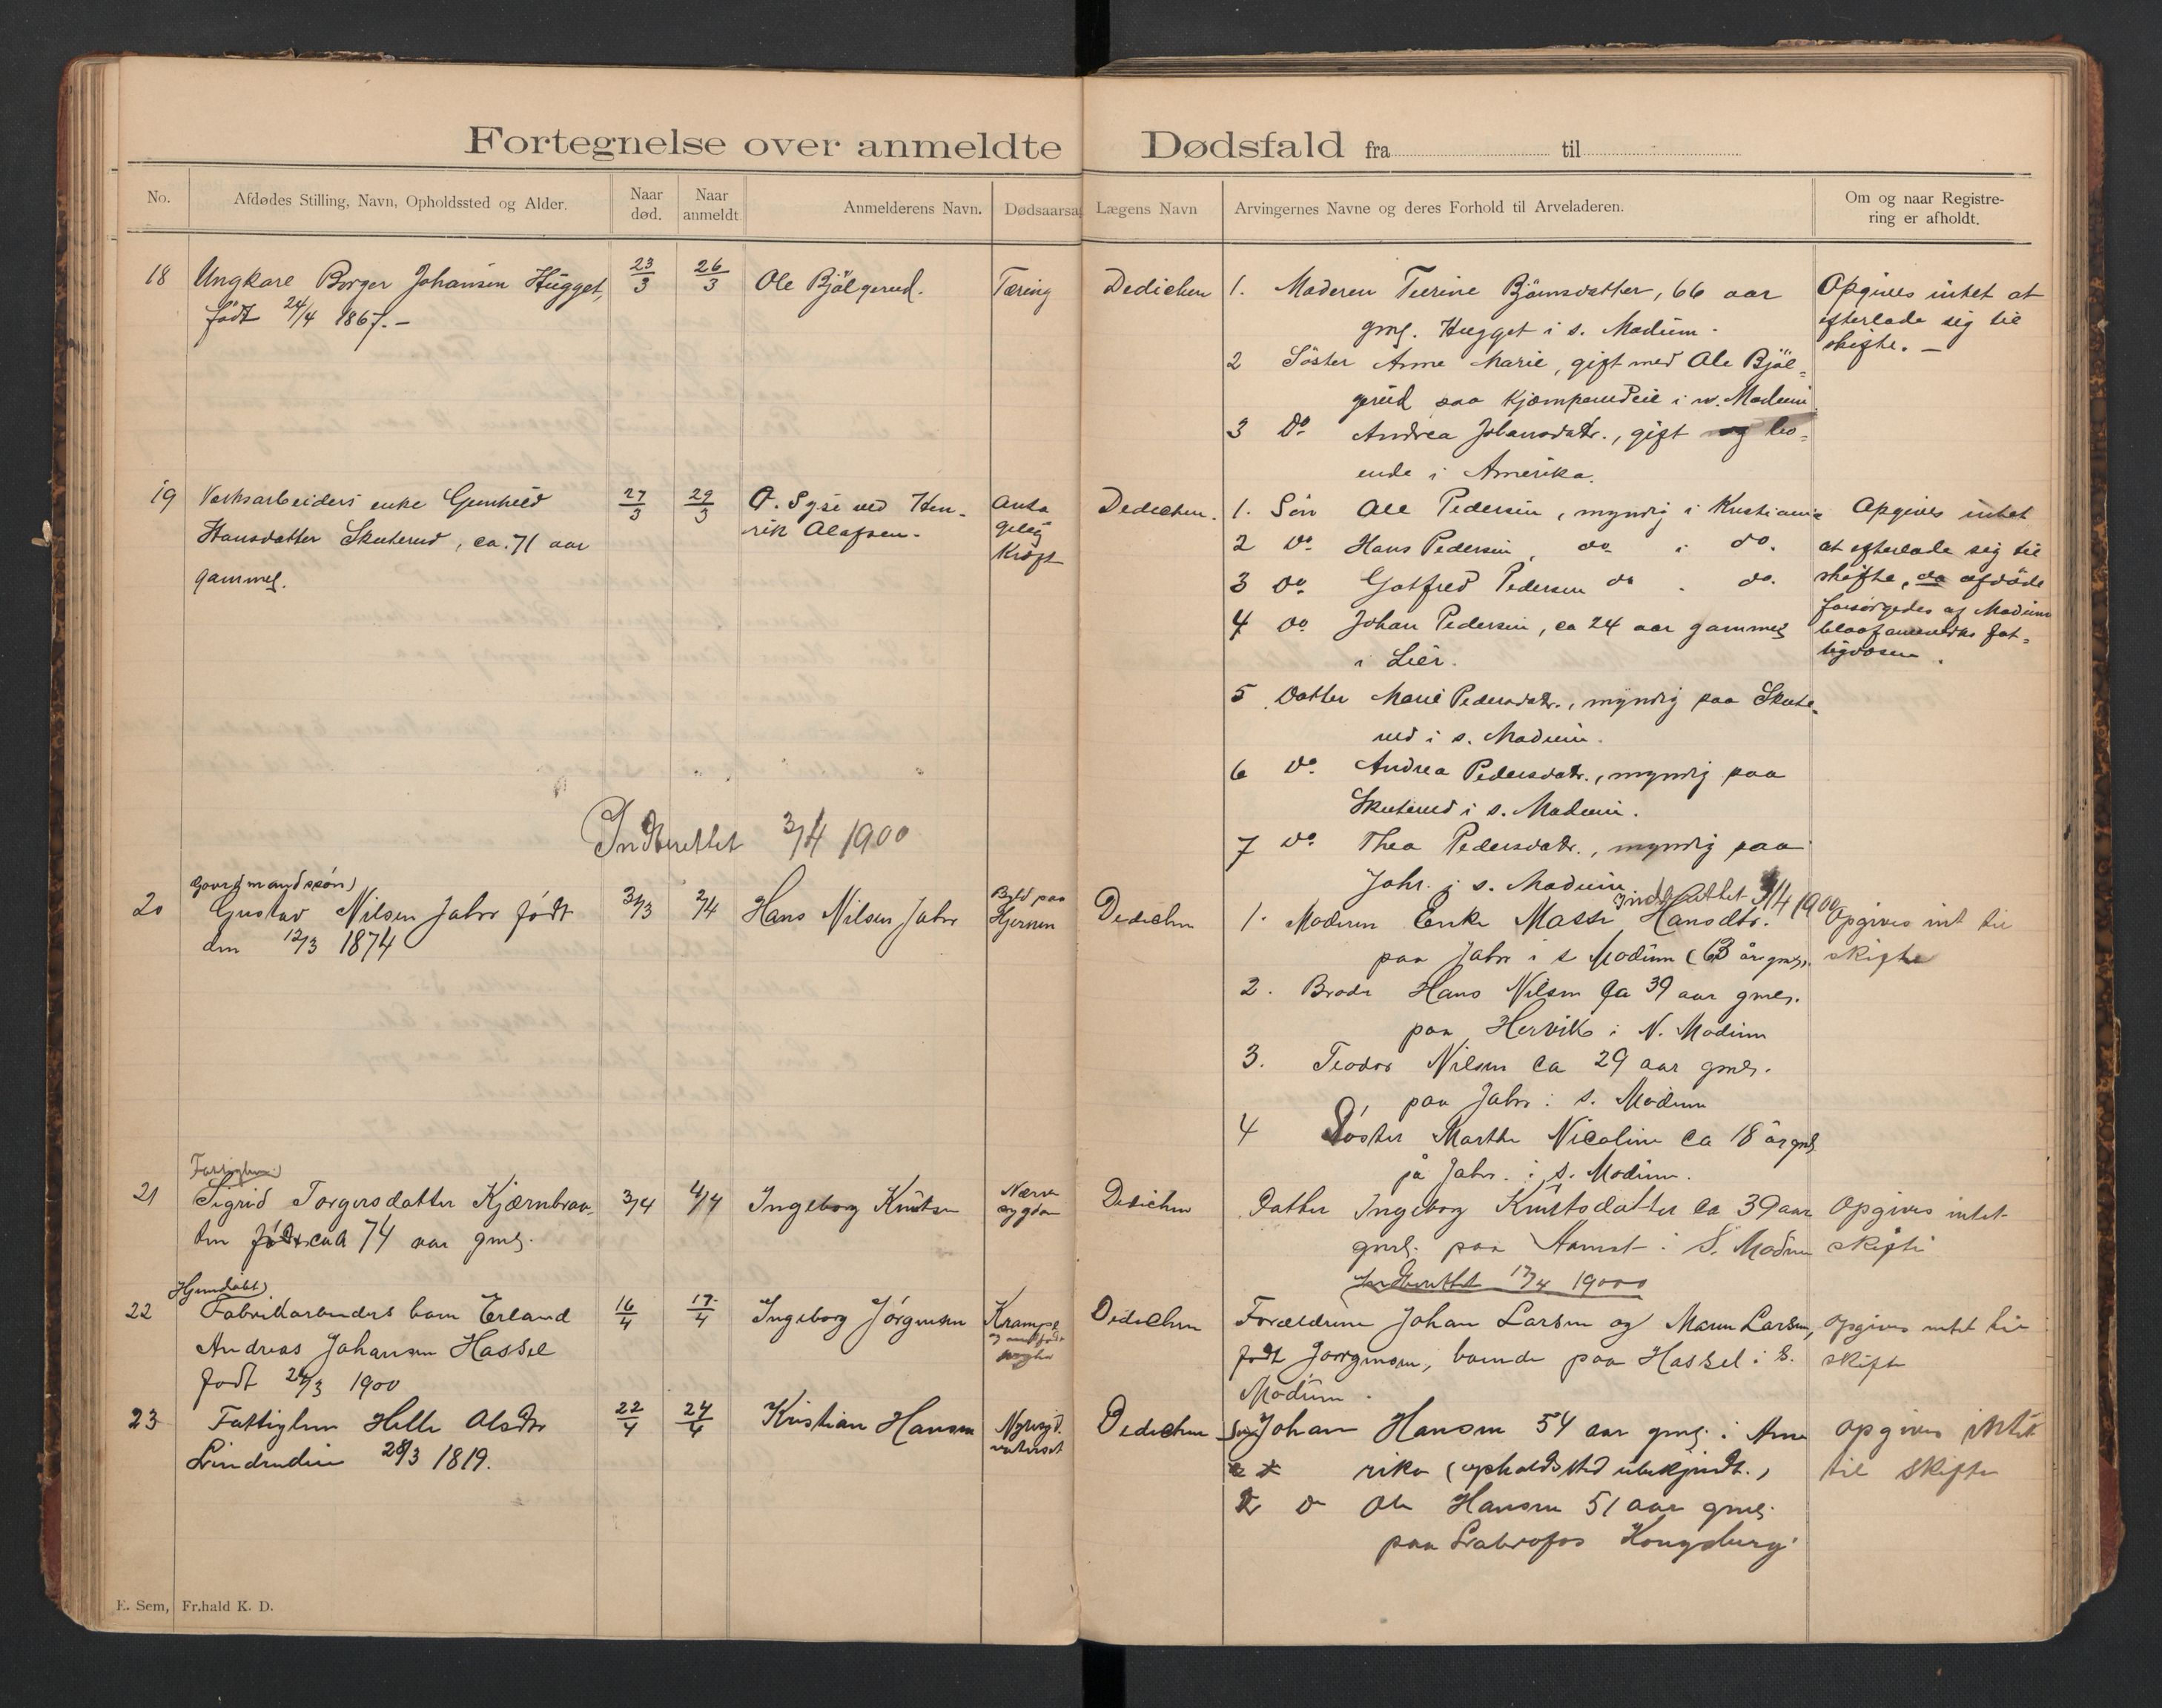 Fortegnelse over anmeldte Dødsfald fra til
No. Afdødes Stilling, Navn, Opholdssted og Alder. Naar død. Naar anmeldt Anmelderens Navn. Dødsaarsa Lægens Navn Arvingernes Navne og deres Forhold til Arveladeren. Om og naar Registre-
ring er afholdt.
18 Ungkare Borger Johansen Hugget, 23/3 26/3 Ole Bjölgerud. Tæring Dedichen
födt 24/4 1867.-
1. Moderen Turine Björnsdatter, 66 aar
gml. Hugget i s. Modum.
2 Söster Anne Marie, gift med Ole Bjöl=
gerud paa Kjömperudeie i n. Modum
3 Do Andrea Johansdatr., gift og bo=
ende i Amerika.
Opgives intet at
efterlade sig til
skifte. -
19 Verksarbeiders enke Gunhild 27/3 29/3 O. Sysi ved Hen- Anta Dedichen.
Hansdatter Skuterud, ca. 71 aar rik Olafsen. gelig
gammel. Kræft
1. Sön Ole Pedersen, myndig i Kristiania
2 Do Hans Pedersen, do i do.
3 Do Gotfred Pedersen do . do.
4 Do Johan Pedersen, ca 24 aar gammel
i Lier.
5 Datter Marie Pedersdatr., myndig paa Skute-
rud i s. Modum.
6 Do. Andrea Pedersdatr., myndig paa
Skuterud i s. Modum.
7 Do. Thea Pedersdatr., myndig paa
Jahr. i s. Modum
Opgives intet
at efterlade sig til
skifte, da afdöde
forsörgedes af Modum
fat=
tigvæsen.
Indberettet 3/4 1900
Indberettet 3/4 1900
Gaardmandssön)
20 Gustav Nilsen Jahr födt 31/3 2/4 Hans Nilsen Jahr Byld paa Hjernen Dedichen
den 12/3 1874
1. Moderen Enke Masse Hansdtr.
paa Jahr i s Modum (63 år gml).
2. Broder Hans Nilsen Ca 39 aar gml.
paa Hervik i N. Modum
3. Teodor Nilsen Ca 29 aar gml.
paa Jahr i s. Modum
4 Söster Marthe Nicoline Ca 18 år gml
på Jahr. i s. Modum.
Opgives int til
skifte
Fattiglem)
21 Sigrid Torgersdatter Kjærnbraa- 3/4 4/4 Ingeborg Knutsen Nerve sygdom Dedichen
ten födt ca 74 aar gml.
Datter Ingeborg Knutsdatter ca 39 aar
gml. paa Aamot i S. Modum
Opgives intet
skifte
Indberettet 17/4 1900
Hjemdöbt)
22 Fabrikarbeiders barn Erland 16/4 17/4 Ingeborg Jörgensen Krampe Dedichen
Andreas Johansen Hassel
födt 24/3 1900
Forældrene Johan Larsen og Maren Larsen,
födt Jörgensen, boende paa Hassel i S.
Modum.
opgives intet til
skifte
23 Fattiglem Helle Olsdtr 22/4 24/4 Kristian Hansen Dedichen
28/3 1819.
Sön Johan Hansen 54 aar gml. i Ame
rika (opholdssted ubekjendt.)
2 do Ole Hansen 51 aar gml.
paa Labrofos Kongsberg.
opgives intet
til skifte
E. Sem, Fr.hald K. D.